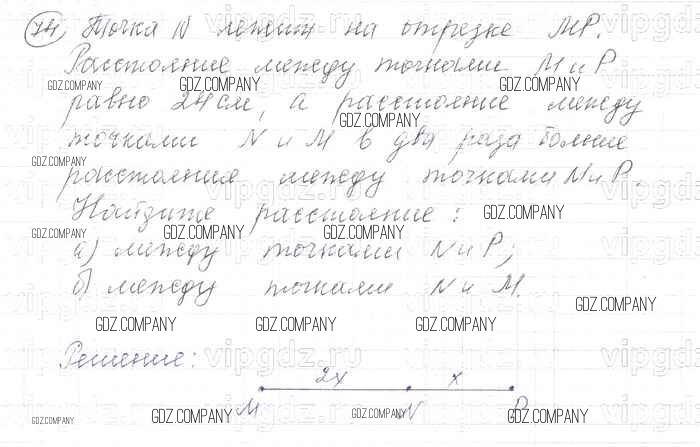 74 Точка N лежит на отрезке MP.
Расстояние между точками M и P
равно 24 см, а расстояние между
точками N и M в два раза больше
расстояния между точками N и P.
Найдите расстояние:
а) между точками N и P;
б) между точками N и M.
Решение:
2x x
M N P
GDZ.COMPANY GDZ.COMPANY GDZ.COMPANY
GDZ.COMPANY
GDZ.COMPANY
GDZ.COMPANY
GDZ.COMPANY GDZ.COMPANY GDZ.COMPANY
GDZ.COMPANY
GDZ.COMPANY GDZ.COMPANY GDZ.COMPANY
GDZ.COMPANY GDZ.COMPANY GDZ.COMPANY GDZ.COMPANY
vipgdz.ru